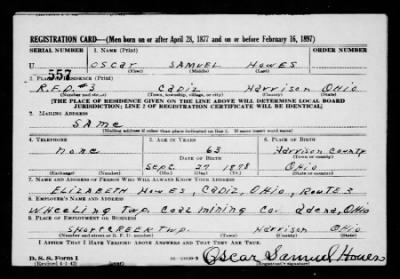 REGISTRATION CARD—(Men born on or after April 28, 1877 and on or before February 16, 1897)
SERIAL NUMBER 1. NAME (Print) ORDER NUMBER
OSCAR SAMUEL HOWES
557 (First) (Middle) (Last)
2. PLACE OF RESIDENCE (Print)
R.F.D. #3 CADIZ HARRISON OHIO
(Number and street) (Town, township, village, or city) (County) (State)
[THE PLACE OF RESIDENCE GIVEN ON THE LINE ABOVE WILL DETERMINE LOCAL BOARD
JURISDICTION; LINE 2 OF REGISTRATION CERTIFICATE WILL BE IDENTICAL]
3. MAILING ADDRESS
SAME
[Mailing address if other than place indicated on line 2. If same insert word same]
4. TELEPHONE 5. AGE IN YEARS 6. PLACE OF BIRTH
none 63 Harrison County
DATE OF BIRTH (Town or county)
Sept 27 1878 Ohio
(Mo.) (Day) (Yr.) (State or country)
7. NAME AND ADDRESS OF PERSON WHO WILL ALWAYS KNOW YOUR ADDRESS
ELIZABETH HOWES, CADIZ, OHIO, ROUTE 3
8. EMPLOYER'S NAME AND ADDRESS
WHEELING TWP. COAL MINING CO. adena, OHIO
9. PLACE OF EMPLOYMENT OR BUSINESS
SHORTCREEK TWP. HARRISON OHIO
(Number and street or R. F. D. number) (Town) (County) (State)
I AFFIRM THAT I HAVE VERIFIED ABOVE ANSWERS AND THAT THEY ARE TRUE.
D. S. S. Form 1 Oscar Samuel Howes
(Revised 4-1-42) (Registrant's signature)